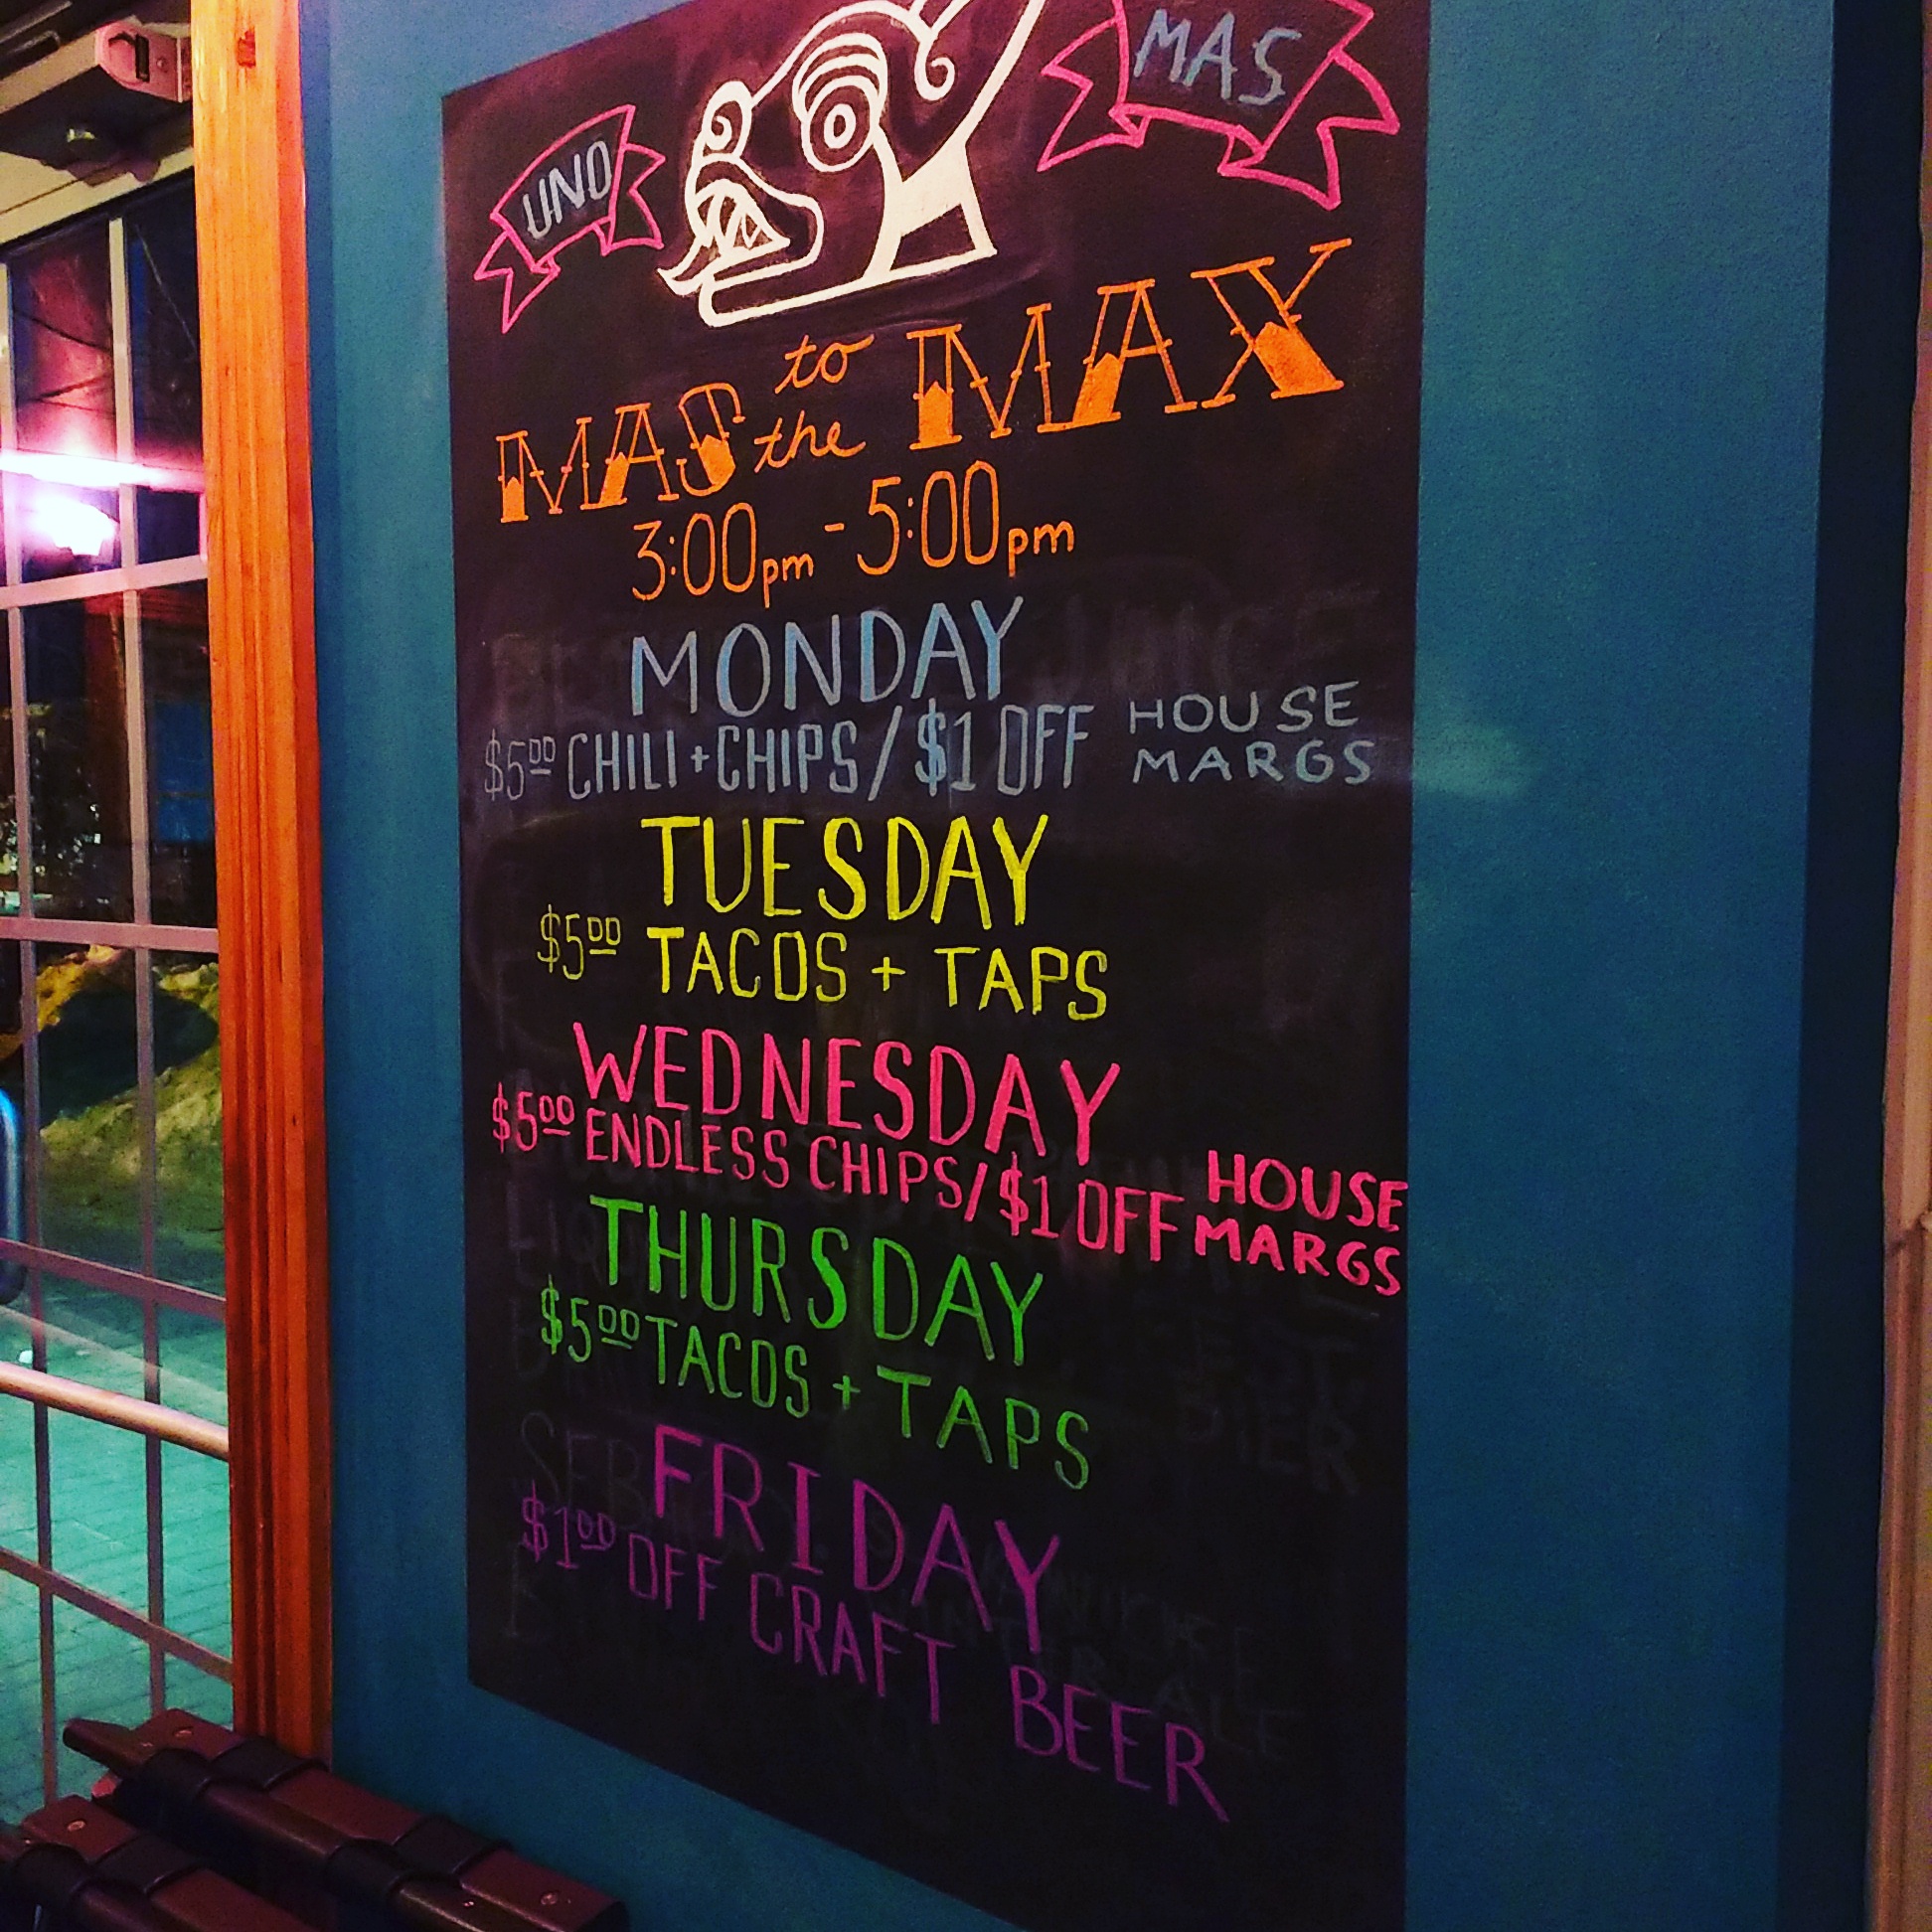 UNO
MAS
MAS to the MAX
3:00pm - 5:00pm
MONDAY
$5.00 CHILI + CHIPS / $1 OFF HOUSE MARGS
TUESDAY
$5.00 TACOS + TAPS
WEDNESDAY
$5.00 ENDLESS CHIPS / $1 OFF HOUSE MARGS
THURSDAY
$5.00 TACOS + TAPS
FRIDAY
$1.00 OFF CRAFT BEER